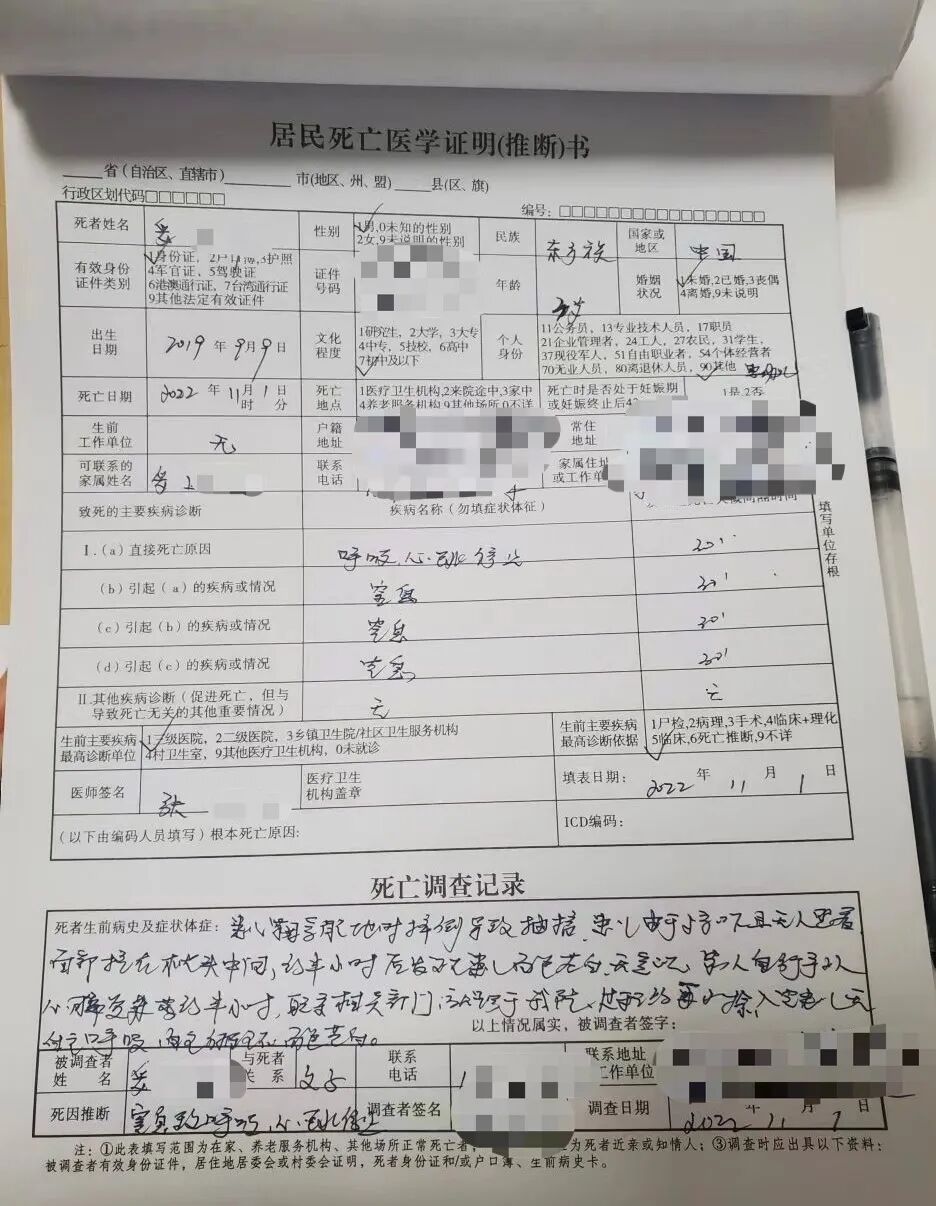 居民死亡医学证明(推断)书
省(自治区、直辖市) 市(地区、州、盟) 县(区、旗)
行政区划代码□□□□□□ 编号:□□□□□□□□□□□□□□□□□
死者姓名 性别 1男,0未知的性别 民族 东乡族 国家或 中国
2女,9未说明的性别 地区
有效身份 1身份证, 2户口簿,3护照 证件 年龄 3岁 婚姻 1未婚,2已婚,3丧偶
证件类别 4军官证, 5驾驶证 号码 状况 4离婚,9未说明
6港澳通行证, 7台湾通行证
9其他法定有效证件
出生 2019年9月9日 文化 1研究生, 2大学, 3大专 个人 11公务员, 13专业技术人员, 17职员
日期 程度 4中专, 5技校, 6高中 身份 21企业管理者, 24工人, 27农民, 31学生,
7初中及以下 37现役军人, 51自由职业者, 54个体经营者
70无业人员, 80离退休人员, 90其他
死亡日期 2022年11月1日 死亡 1医疗卫生机构,2来院途中,3家中 死亡时是否处于妊娠期 1是,2否
时 分 地点 4养老服务机构,9其他场所,0不详 或妊娠终止后42
生前 无 户籍 常住
工作单位 地址 地址
可联系的 联系 家属住址
家属姓名 电话 或工作单
致死的主要疾病诊断 疾病名称(勿填症状体征)
填写单位存根
Ⅰ.(a)直接死亡原因 呼吸、心跳停止
(b)引起(a)的疾病或情况 窒息 30'
(c)引起(b)的疾病或情况 窒息 30'
(d)引起(c)的疾病或情况 窒息 30'
Ⅱ.其他疾病诊断(促进死亡,但与 无 无
导致死亡无关的其他重要情况)
生前主要疾病 1三级医院, 2二级医院, 3乡镇卫生院/社区卫生服务机构 生前主要疾病 1尸检,2病理,3手术,4临床+理化
最高诊断单位 4村卫生室, 9其他医疗卫生机构, 0未就诊 最高诊断依据 5临床,6死亡推断,9不详
医师签名 张 医疗卫生 填表日期: 2022年11月1日
机构盖章
(以下由编码人员填写)根本死亡原因: ICD编码:
死亡调查记录
死者生前病史及症状体症: 患儿 时摔倒导致抽搐,患儿由于 且无人照看
面部 中间,约半小时后发现患儿面色苍白,无意识,家人自行予以
心肺复苏 约半小时, 我院,
呼吸, 面色苍白。
以上情况属实,被调查者签字:
被调查者 与死者 父子 联系 联系地址
姓 名 关 系 电话 工作单位
死因推断 窒息致呼吸、心跳停止 调查者签名 调查日期 2022年11月1日
注:①此表填写范围为在家、养老服务机构、其他场所正常死亡者; 为死者近亲或知情人;③调查时应出具以下资料:
被调查者有效身份证件,居住地居委会或村委会证明,死者身份证和/或户口簿、生前病史卡。